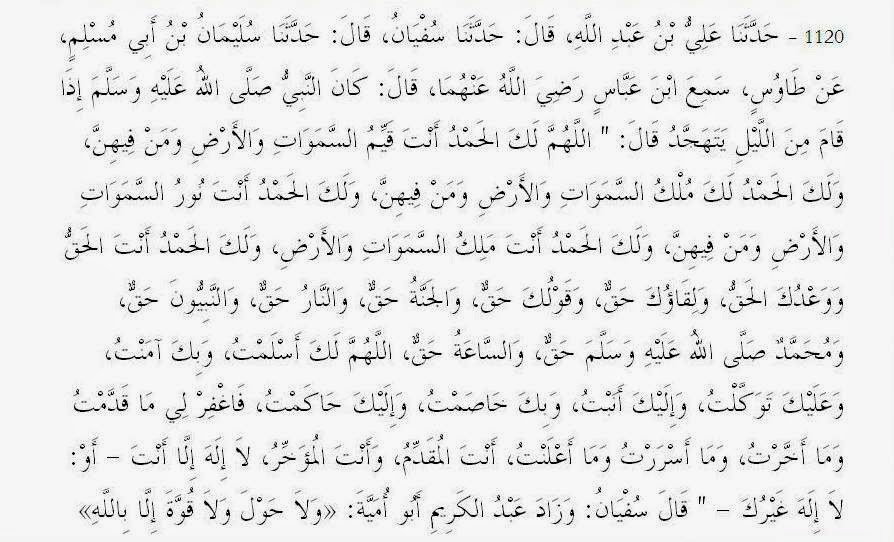 1120 - حَدَّثَنَا عَلِيُّ بْنُ عَبْدِ اللَّهِ، قَالَ: حَدَّثَنَا سُفْيَانُ، قَالَ: حَدَّثَنَا سُلَيْمَانُ بْنُ أَبِي مُسْلِمٍ،
عَنْ طَاوُسٍ، سَمِعَ ابْنَ عَبَّاسٍ رَضِيَ اللَّهُ عَنْهُمَا، قَالَ: كَانَ النَّبِيُّ صَلَّى اللهُ عَلَيْهِ وَسَلَّمَ إِذَا
قَامَ مِنَ اللَّيْلِ يَتَهَجَّدُ قَالَ: " اللَّهُمَّ لَكَ الحَمْدُ أَنْتَ قَيِّمُ السَّمَوَاتِ وَالأَرْضِ وَمَنْ فِيهِنَّ،
وَلَكَ الحَمْدُ لَكَ مُلْكُ السَّمَوَاتِ وَالأَرْضِ وَمَنْ فِيهِنَّ، وَلَكَ الحَمْدُ أَنْتَ نُورُ السَّمَوَاتِ
وَالأَرْضِ وَمَنْ فِيهِنَّ، وَلَكَ الحَمْدُ أَنْتَ مَلِكُ السَّمَوَاتِ وَالأَرْضِ، وَلَكَ الحَمْدُ أَنْتَ الحَقُّ
وَوَعْدُكَ الحَقُّ، وَلِقَاؤُكَ حَقٌّ، وَقَوْلُكَ حَقٌّ، وَالجَنَّةُ حَقٌّ، وَالنَّارُ حَقٌّ، وَالنَّبِيُّونَ حَقٌّ،
وَمُحَمَّدٌ صَلَّى اللهُ عَلَيْهِ وَسَلَّمَ حَقٌّ، وَالسَّاعَةُ حَقٌّ، اللَّهُمَّ لَكَ أَسْلَمْتُ، وَبِكَ آمَنْتُ،
وَعَلَيْكَ تَوَكَّلْتُ، وَإِلَيْكَ أَنَبْتُ، وَبِكَ خَاصَمْتُ، وَإِلَيْكَ حَاكَمْتُ، فَاغْفِرْ لِي مَا قَدَّمْتُ
وَمَا أَخَّرْتُ، وَمَا أَسْرَرْتُ وَمَا أَعْلَنْتُ، أَنْتَ المُقَدِّمُ، وَأَنْتَ المُؤَخِّرُ، لاَ إِلَهَ إِلَّا أَنْتَ - أَوْ:
لاَ إِلَهَ غَيْرُكَ - " قَالَ سُفْيَانُ: وَزَادَ عَبْدُ الكَرِيمِ أَبُو أُمَيَّةَ: «وَلاَ حَوْلَ وَلاَ قُوَّةَ إِلَّا بِاللَّهِ»